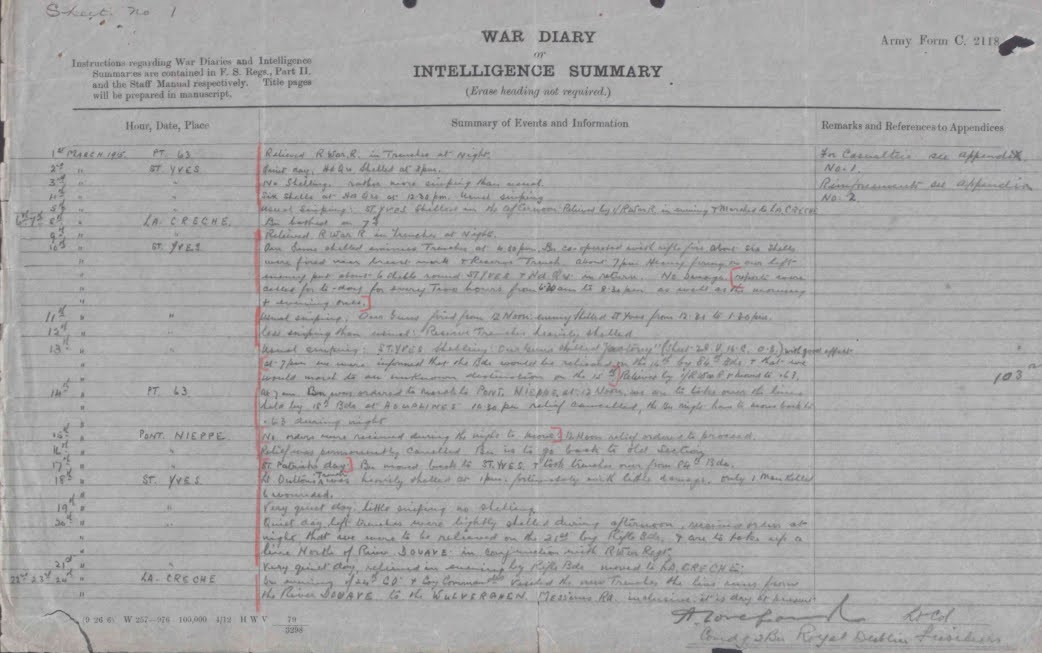 Sheet No 1
WAR DIARY
or
INTELLIGENCE SUMMARY
(Erase heading not required.)
Army Form C. 2118
Instructions regarding War Diaries and Intelligence
Summaries are contained in F. S. Regs., Part II,
and the Staff Manual respectively. Title pages
will be prepared in manuscript.
Hour, Date, Place
Summary of Events and Information
Remarks and References to Appendices
1st MARCH 1915. PT. 63 Relieved R War. R. in Trenches at Night. For Casualties see appendix
2nd " ST. YVES Quiet day. Hd Qrs Shelled at 3pm. No. 1.
3rd " " No Shelling. rather more sniping than usual. Reinforcements see appendix
" " Six Shells at Hd Qrs at 12.30 pm. Usual sniping No. 2.
Usual sniping. ST. YVES Shelled in the afternoon Relieved by R War R in evening & Marched to LA CRECHE
8th " LA. CRECHE. Bn bathed on 7th
9th " Relieved R War R in Trenches at Night.
10th " ST. YVES Our Guns shelled enemies Trenches at 4.50 pm. Bn co-operated with rifle fire about six shells
were fired near breast work & Reserve Trench. about 7pm Heavy firing on our left
enemy put about 6 shells round ST. YVES & Hd Qrs in return. No Damage. [reports were
called for to-day for every Two hours from am to 8.30 pm as well as the morning
& evening ones.]
11th " " Usual sniping. Our Guns fired from 12 Noon enemy shelled St Yves from 12.31 to 1.30 pm.
12th " Less sniping than usual. Reserve Trenches heavily shelled
13th " " Usual sniping. ST. YVES Shelling. Our Guns shelled "Factory" with good effect.
[at 7pm we were informed that the Bde would be relieved on the by 84th Bde. & that we
would march to an unknown destination on the 15th] Relieved by R War R & March to .63. 103
14th " PT. 63 Bn was ordered to march to PONT. NIEPPE at 12 Noon, we are to take over the lines
held by Bde at HOUPLINES 10.30 pm relief cancelled, the Bn might have to move back to
.63 during night
15th " PONT. NIEPPE. No orders were received during the night to move.] 12 Noon relief ordered to proceed.
16th " " Relief was permanently cancelled Bn is to go back to old section
17th " " [St. Patricks day] Bn moved back to ST. YVES & took trenches over from 84th Bde.
18th " ST. YVES Lt Dutton's Trench was heavily shelled at 1pm. fortunately with little damage. only 1 man killed
6 wounded.
19th " " Very quiet day. little sniping no shelling
20th " " Quiet day, left trenches were lightly shelled during afternoon. received orders at
night that we were to be relieved on the 21st by Rifle Bde. & are to take up a
line North of River DOUAVE in conjunction with R War Regt.
21st " Very quiet day, relieved in evening by Rifle Bde moved to LA. CRECHE.
22nd 23rd 24th " LA. CRECHE On evening of 24th CO & Coy Commanders visited the new Trenches the line runs from
the River DOUAVE to the WULVERGHEM MESSINES Rd. inclusive. it is day at present
Lt Col
Comdg 2 Bn Royal Dublin Fusiliers
(9 26 6) W 257—976 100,000 4/12 H W V 79
3298